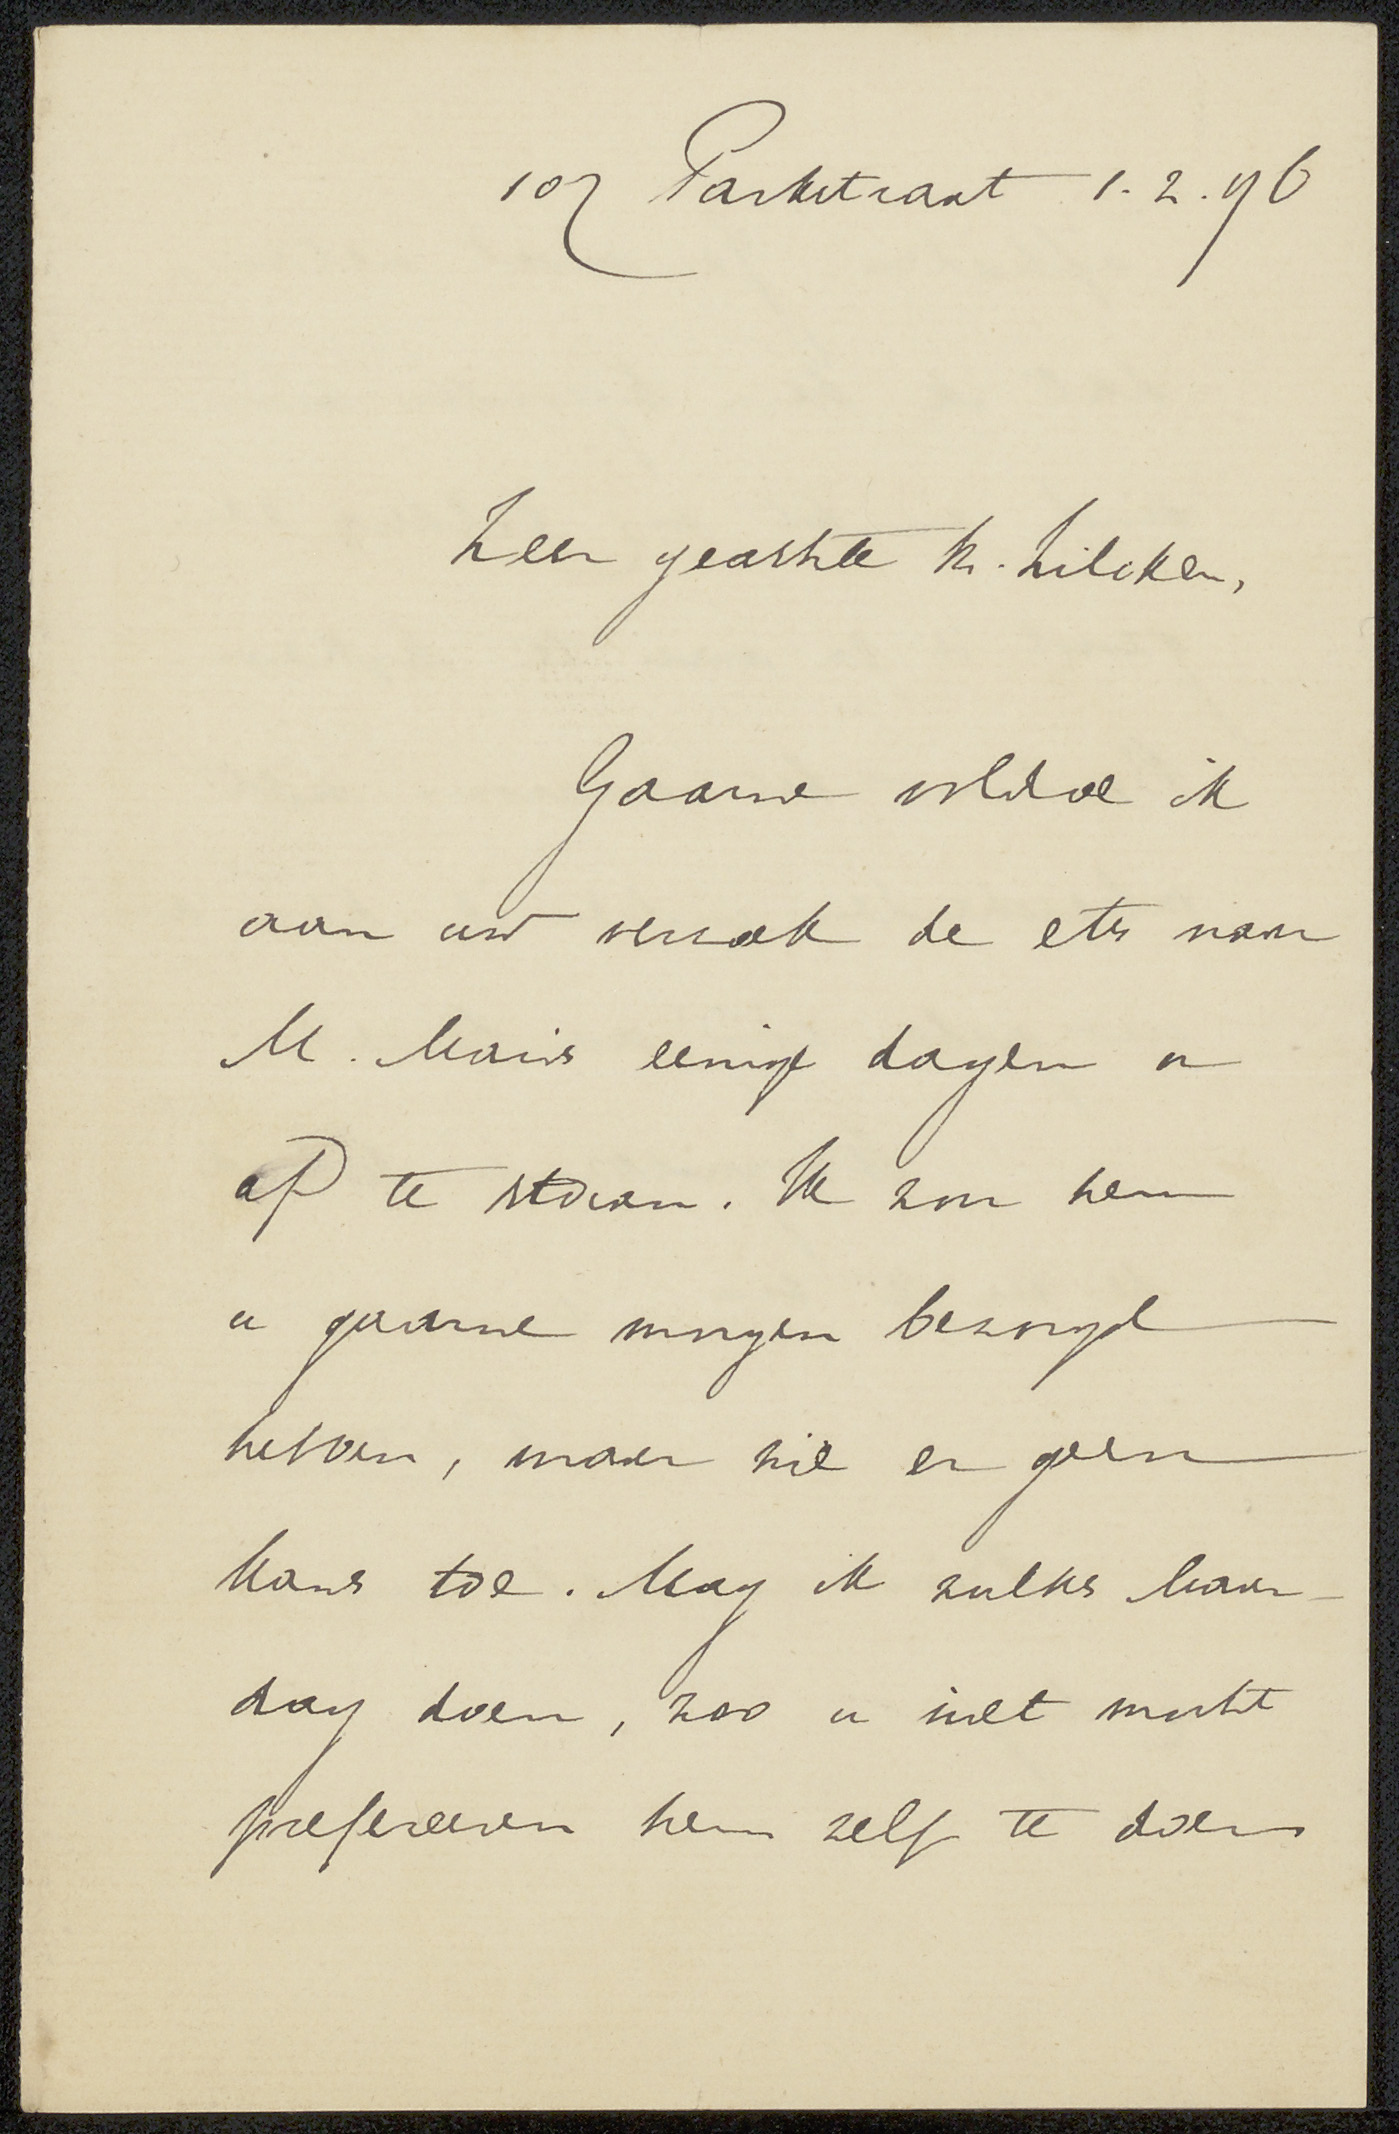 107 Parkstraat 1.2.96
Zeer geachte Hr. Zilcken,
Gaarne voldoe ik
aan uw verzoek de ets van
M. Maris eenige dagen u
af te staan. Ik zou hem
u gaarne morgen bezorgd
hebben, maar zie er geen
kans toe. Mag ik zulks Maan-
dag doen, zoo u niet mocht
prefereeren hem zelf te doen